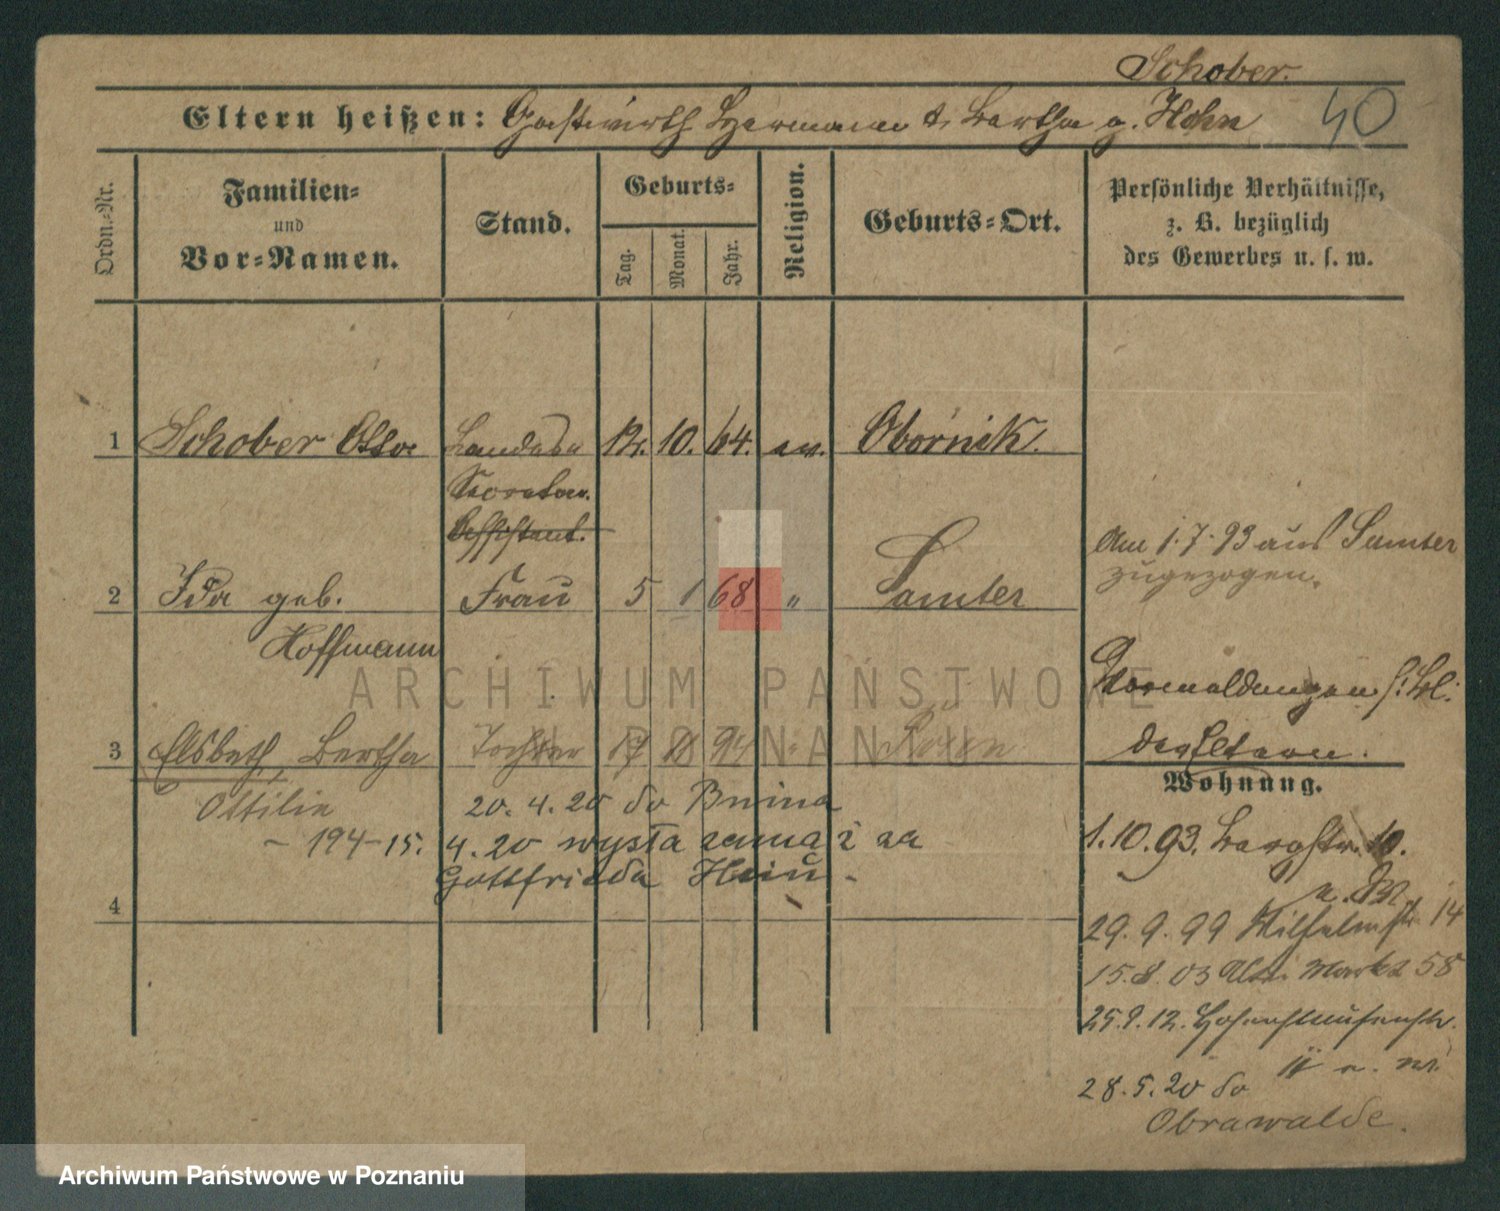 Schober.
Eltern heißen: Gastwirth Hermann & Bertha g. Hohn 40
Ordn.-Nr.
Familien-
und
Vor-Namen.
Stand.
Geburts-
Tag.
Monat.
Jahr.
Religion.
Geburts-Ort.
Persönliche Verhältnisse,
z. B. bezüglich
des Gewerbes u. s. w.
1 Schober Otto Landes- 12. 10. 64. ev. Obornik.
Secretär.
Assistent.
Am 1.7.93 aus Samter
zugezogen.
2 Ida geb. Frau 5 1 68 " Samter
Hoffmann
des Eltern.
3 Elsbeth, Bertha Tochter 17 11 94 " Posen
Wohnung.
Ottilie 20.4.20 do Bnina
- 194-15. 4.20 wyszła zamąż za
Gottfrieda Hein.-
1.10.93. Bergstr. 10.
4
29.9.99 Wilhelmstr 14
15.8.03 Alter Markt 58
25.9.12. Hohenstaufenstr.
28.5.20 do
Obrawalde.
ARCHIWUM PAŃSTWOWE
W POZNANIU
Archiwum Państwowe w Poznaniu